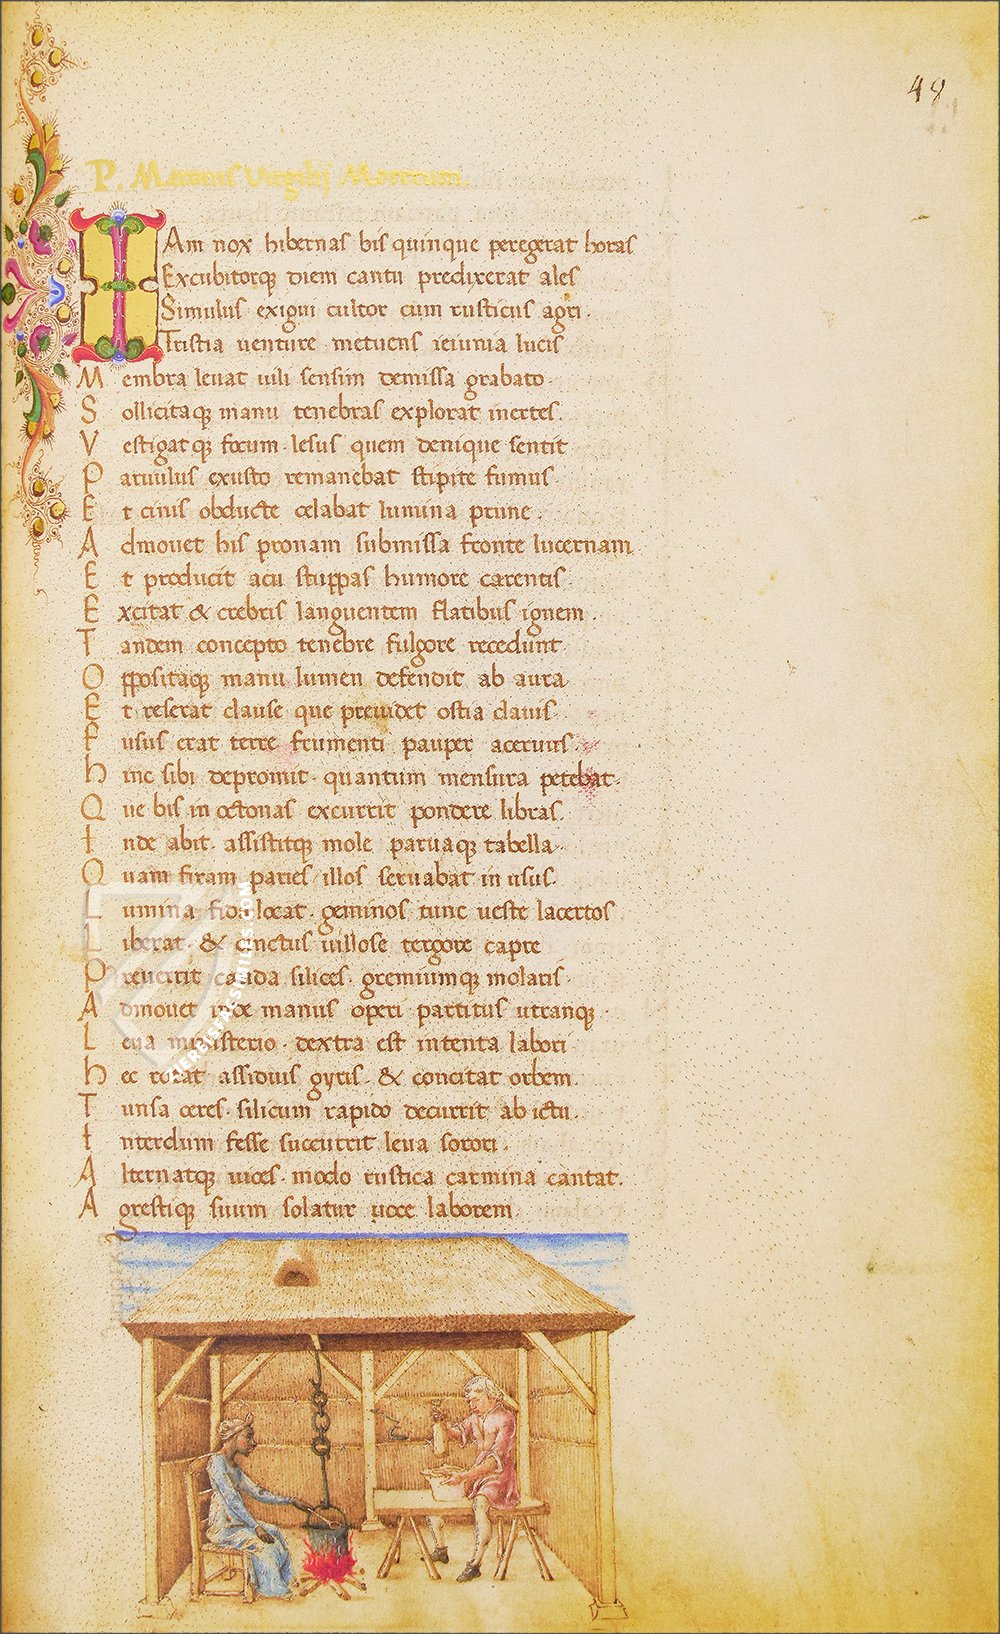 48
P. Maronis Virgilij Moretum.
IAm nox hibernas bis quinque peregerat horas
Excubitorq; diem cantu predixerat ales
Simulus exigui cultor cum rusticus agri.
Tristia uenture metuens ieiunia lucis
Membra leuat uili sensim demissa grabato.
Sollicitaq; manu tenebras explorat inertes.
Vestigatq; focum. lesus quem denique sentit
Paruulus exusto remanebat stipite fumus.
Et cinis obducte celabat lumina prune.
Admouet his pronam submissa fronte lucernam
Et producit acu stuppas humore carentis.
Excitat & crebris languentem flatibus ignem.
Tandem concepto tenebre fulgore recedunt.
Oppositaq; manu lumen defendit ab aura
Et reserat clause que preuidet ostia clauis.
Fusus erat terre frumenti pauper aceruus.
hinc sibi depromit. quantum mensura petebat.
Que bis in octonas excurrit pondere libras.
Inde abit. assistitq; mole paruaq; tabella.
Quam firam paries. illos seruabat in usus.
Lumina fida locat. geminos tunc ueste lacertos
Liberat. & cinctus uillose tergore capre
Preuerrit cauda silices. gremiumq; molaris.
Admouet inde manus operi partitus utranq;
Leua ministerio. dextra est intenta labori
hec rotat assiduis gyris. & concitat orbem.
Tunsa ceres. silicum rapido decurrit ab ictu.
Interdum fesse succurrit leua sorori.
Alternatq; uices. modo rustica carmina cantat.
Agrestiq; suum solatur uoce laborem